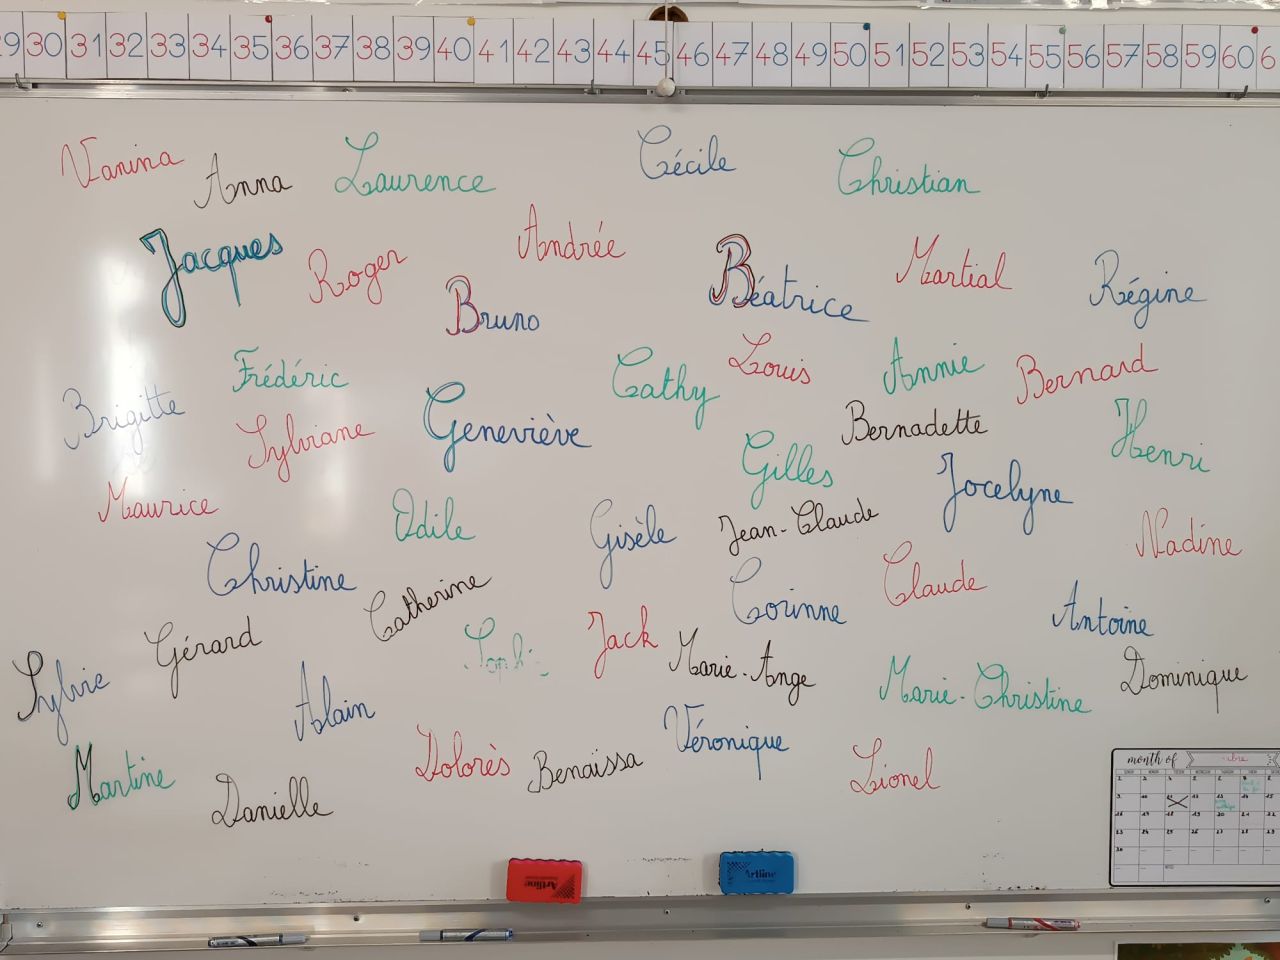 29 30 31 32 33 34 35 36 37 38 39 40 41 42 43 44 45 46 47 48 49 50 51 52 53 54 55 56 57 58 59 60 6
Vanina Anna Laurence Cécile Christian
Jacques Roger Andrée Béatrice Martial Régine
Bruno
Frédéric Cathy Louis Annie Bernard
Brigitte Sylviane Geneviève Bernadette Henri
Gilles Jocelyne
Maurice Odile Gisèle Jean-Claude Nadine
Christine Catherine Corinne Claude Antoine
Gérard Sophie Jack Marie-Ange Marie-Christine Dominique
Sylvie Alain
Véronique
Martine Danielle Dolorès Benaissa Lionel
month of
Artline Artline